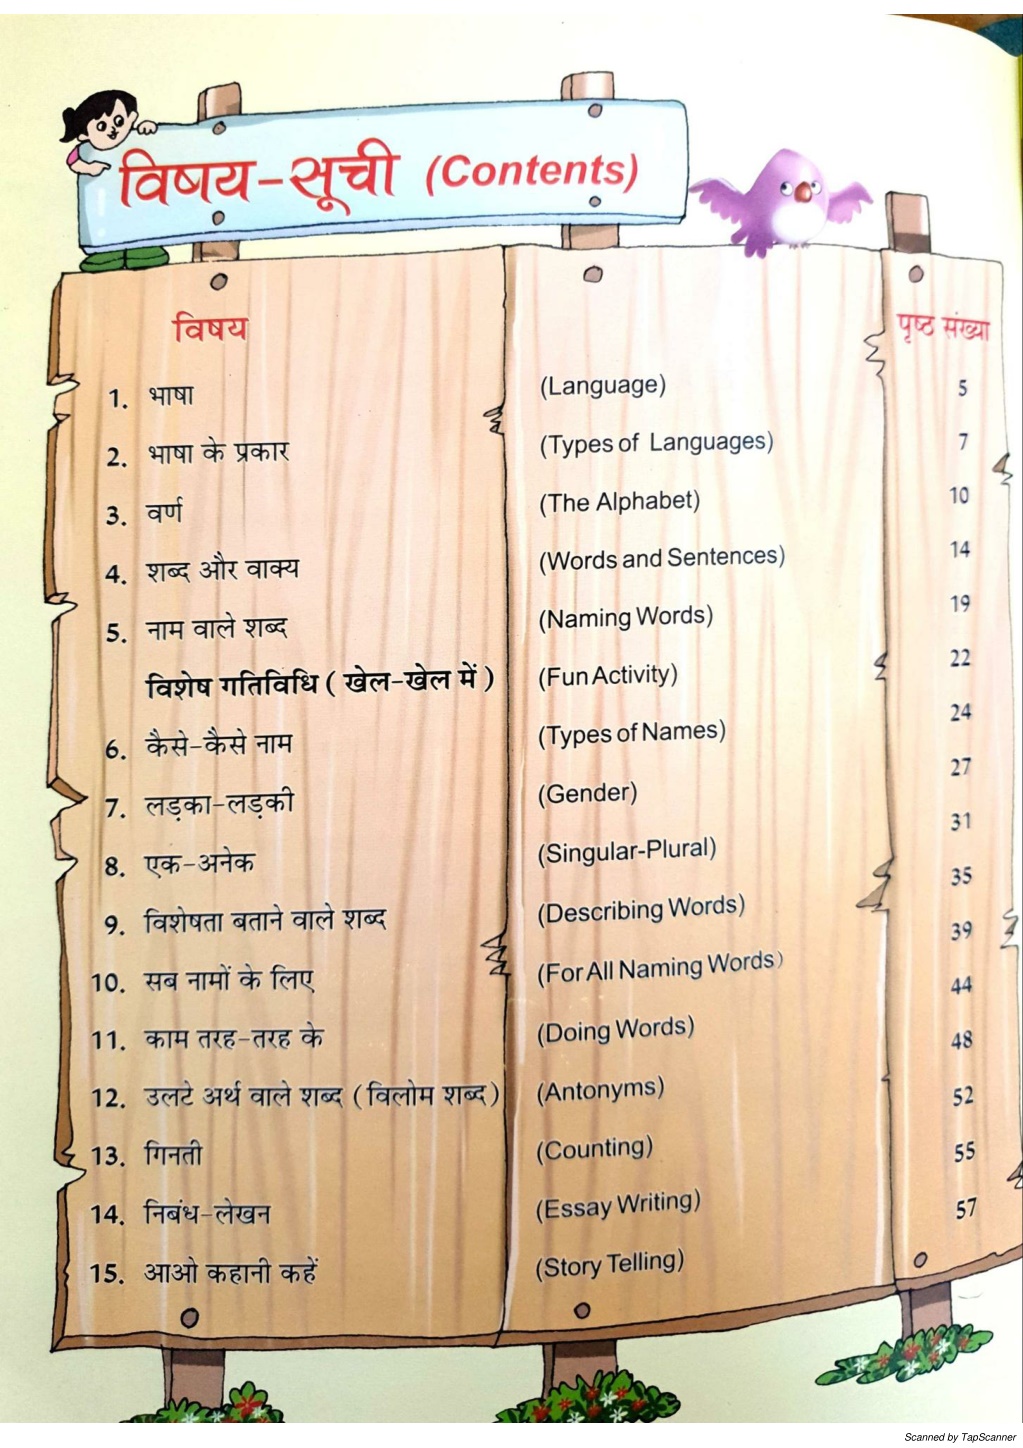 विषय-सूची (Contents)
विषय पृष्ठ संख्या
1. भाषा (Language) 5
2. भाषा के प्रकार (Types of Languages) 7
3. वर्ण (The Alphabet) 10
4. शब्द और वाक्य (Words and Sentences) 14
5. नाम वाले शब्द (Naming Words) 19
विशेष गतिविधि ( खेल-खेल में ) (Fun Activity) 22
6. कैसे-कैसे नाम (Types of Names) 24
7. लड़का-लड़की (Gender) 27
8. एक-अनेक (Singular-Plural) 31
9. विशेषता बताने वाले शब्द (Describing Words) 35
10. सब नामों के लिए (For All Naming Words) 39
11. काम तरह-तरह के (Doing Words) 44
12. उलटे अर्थ वाले शब्द ( विलोम शब्द ) (Antonyms) 48
13. गिनती (Counting) 52
14. निबंध-लेखन (Essay Writing) 55
15. आओ कहानी कहें (Story Telling) 57
Scanned by TapScanner